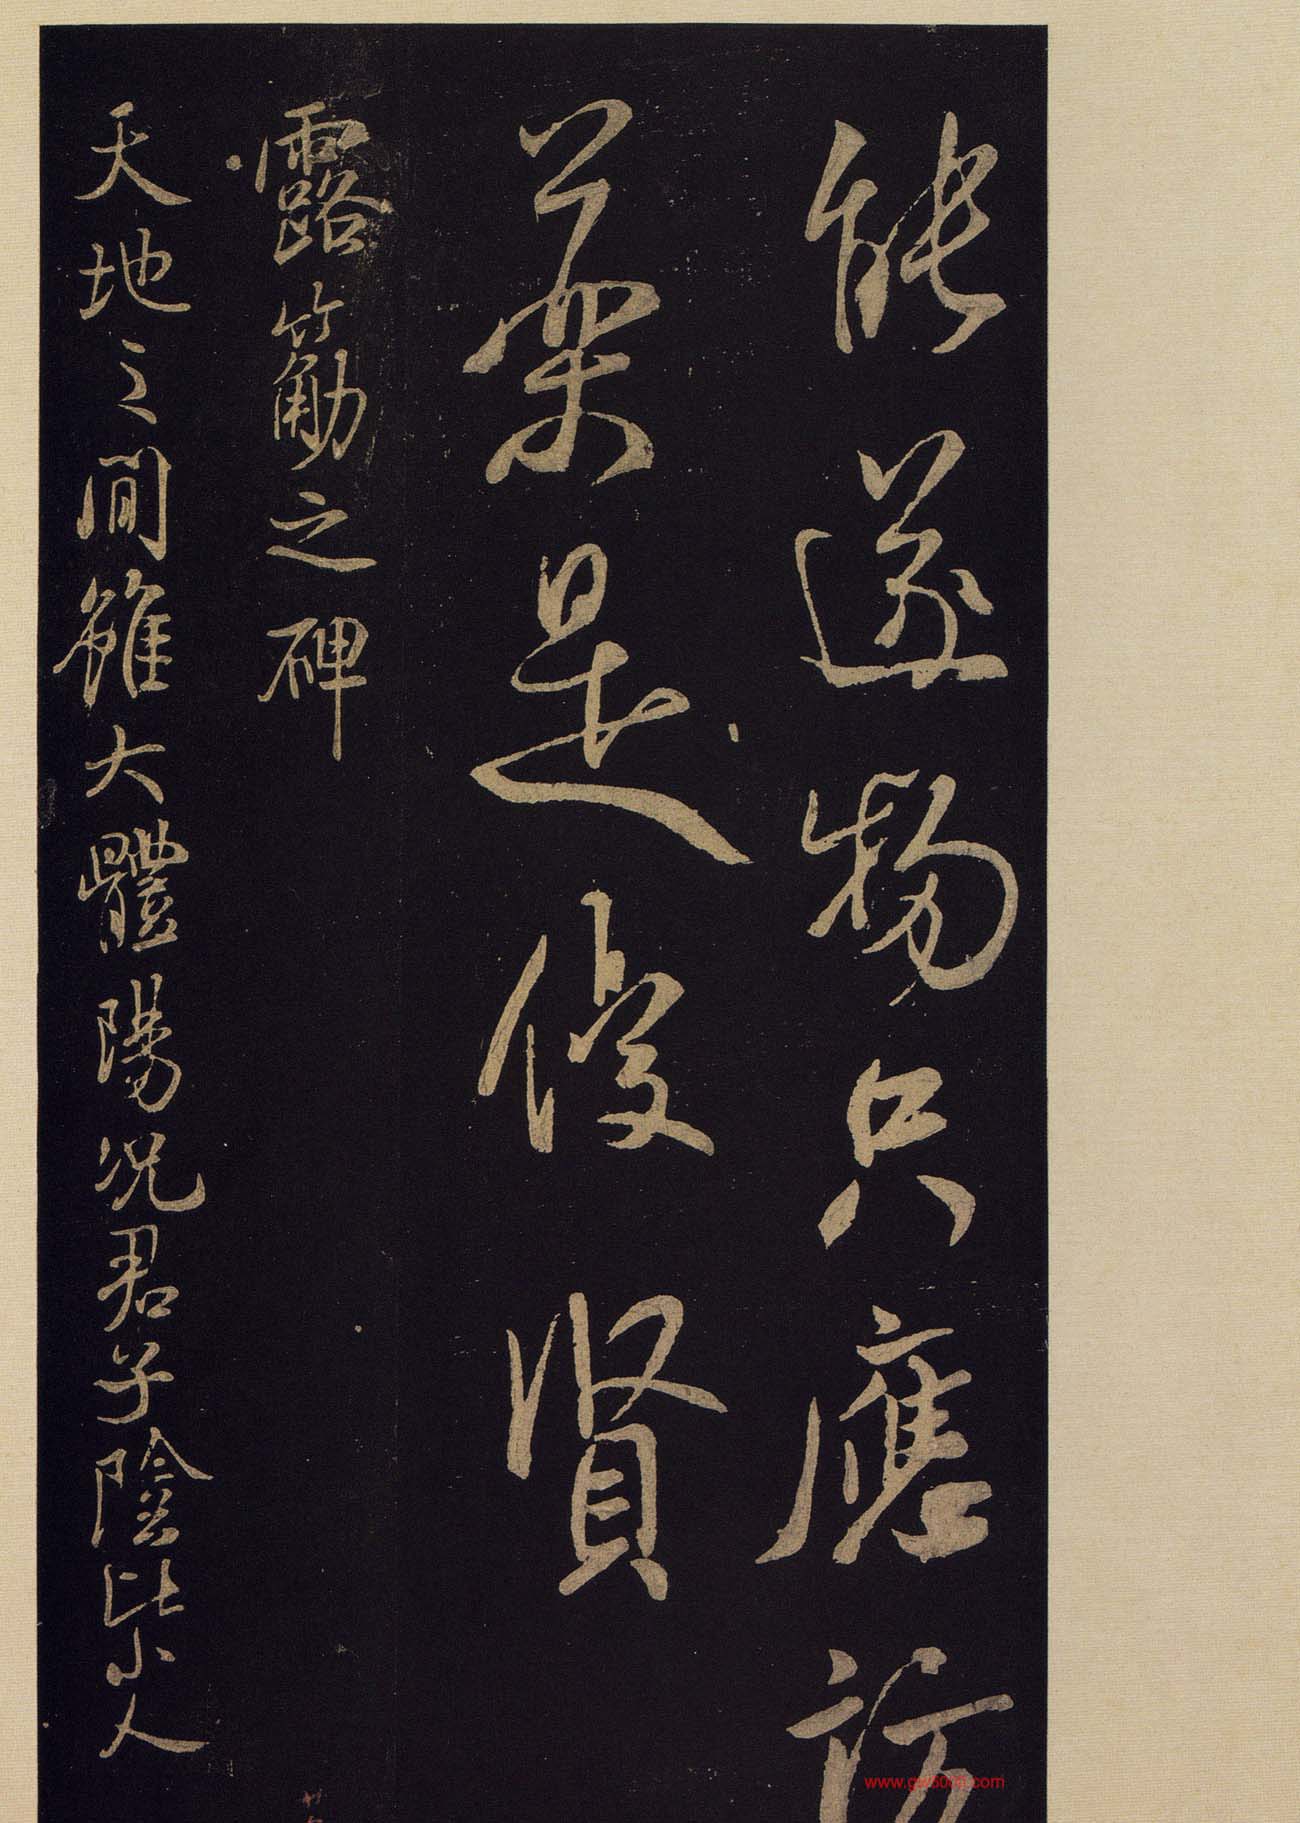 能遂物只應訪
是俊賢
露䈥之碑
天地之間雖大體陽況君子陰比小人
www.gw8006.com